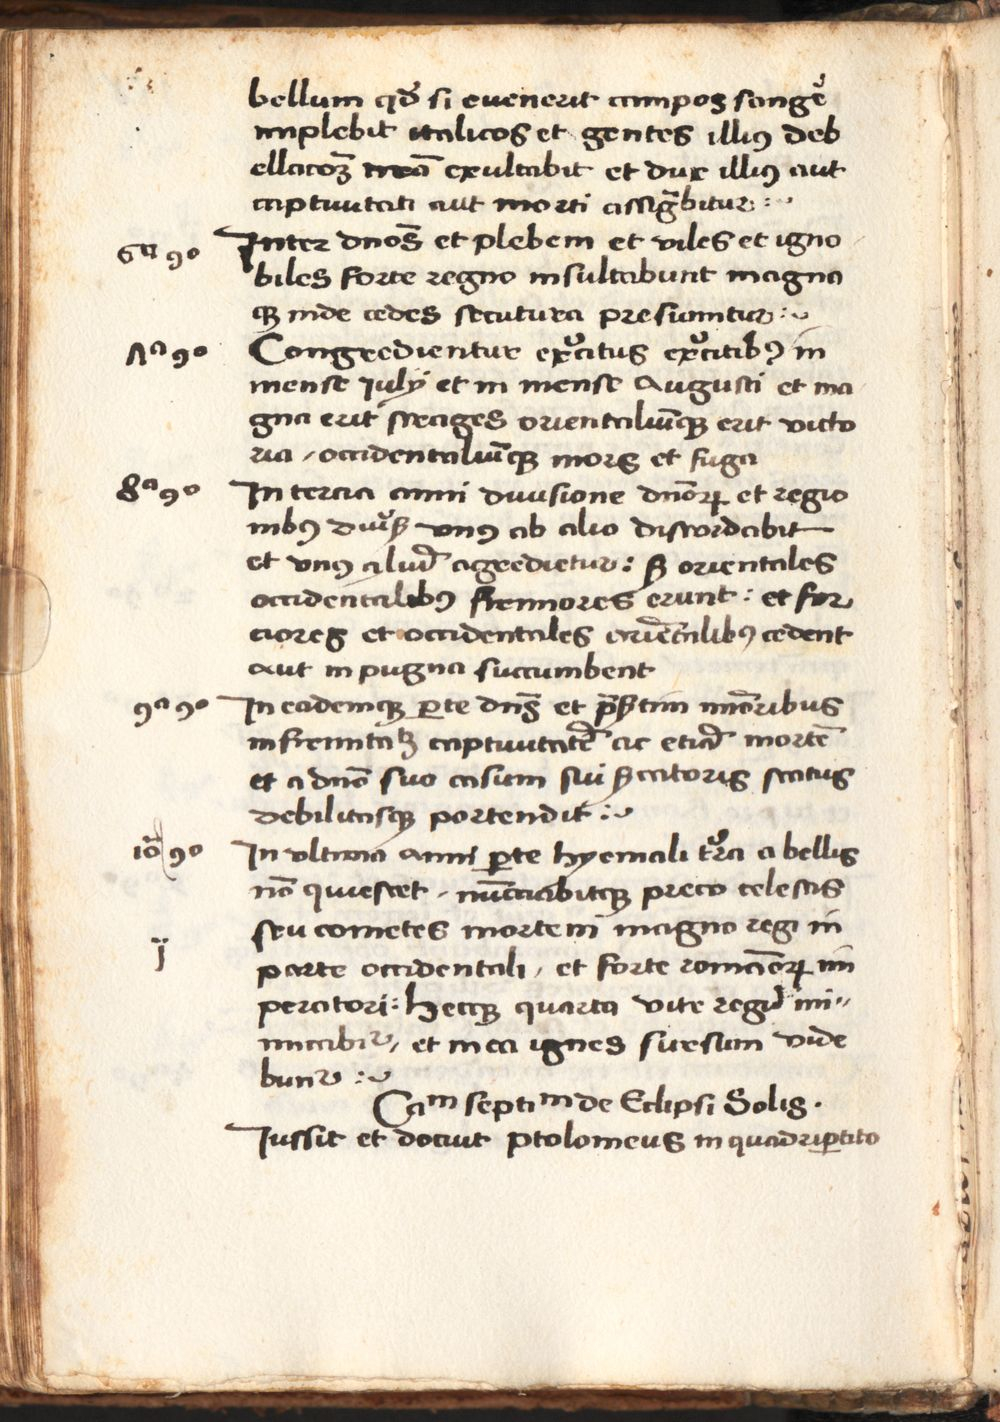 bellum qđ si evenerit campos sangᵉ̄
implebit italicos et gentes illiꝰ deb
ellacōꝫ exultabit et dux illiꝰ aut
captivitati aut morti assigᵃbitur :~
6ᵃ 9º Inter dnōs et plebem et viles et igno
biles forte regno insultabunt magna
qꝫ inde cedes secutura presumitur :~
7ᵃ 9º Congredientur exᵉrcitus exᵉrcitibꝰ in
mense July et in mense Augusti et ma
gna erit strages orientaliūqꝫ erit victo
ria / occidentaliūqꝫ mors et fuga
8ᵃ 9º In tercia anni divisione dnōꝝ et regio
nibꝰ divᵉrsꝭ unꝰ ab alio discordabit
et unꝰ aliud̄ agredietur : sꝫ orientales
occidentalibꝰ firmiores erunt : et for
ciores et occidentales oriēntalibꝰ cedent
aut in pugna succumbent
9ᵃ 9º In eademqꝫ ꝑte dnīs et p̄sertim minōribus
infirmitatꝫ captivitatē ac etiā mortē
et a dnō suo casum sui p̄catoris status
debilitasqꝫ portendit :~
10ᵃ 9º In ultima anni ꝑte hyemali tᵉrra a bellis
nō quiescet / nūnciabitqꝫ preco celestis
seu cometes mortem magno regi in
ij
parte occidentali / et forte romanōꝝ im
peratori : hecqꝫ quarta vite regū mi〃
nitabiᵗ / et in ea ignes sursum vide
bunᵗ :~
Caᵐ septiᵐ de Eclipsi Solis .
Iussit et docuit ptolomeus in quadriꝑtito